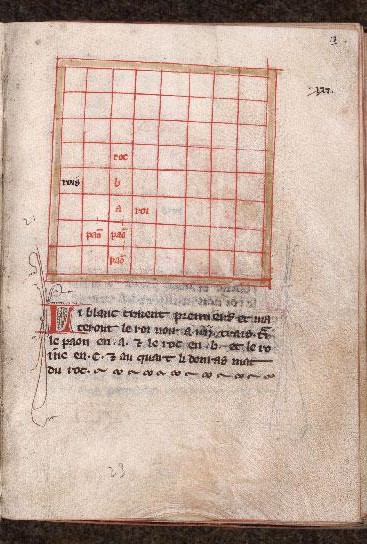 roc
rois b
a roi
paõ paõ
paõ
i blanc traient premiers et ma
teront le roi noir a trais
le paon en .a. & le roc en .b. et le ro
en .c. & au quart li donras mat
du roc.
23